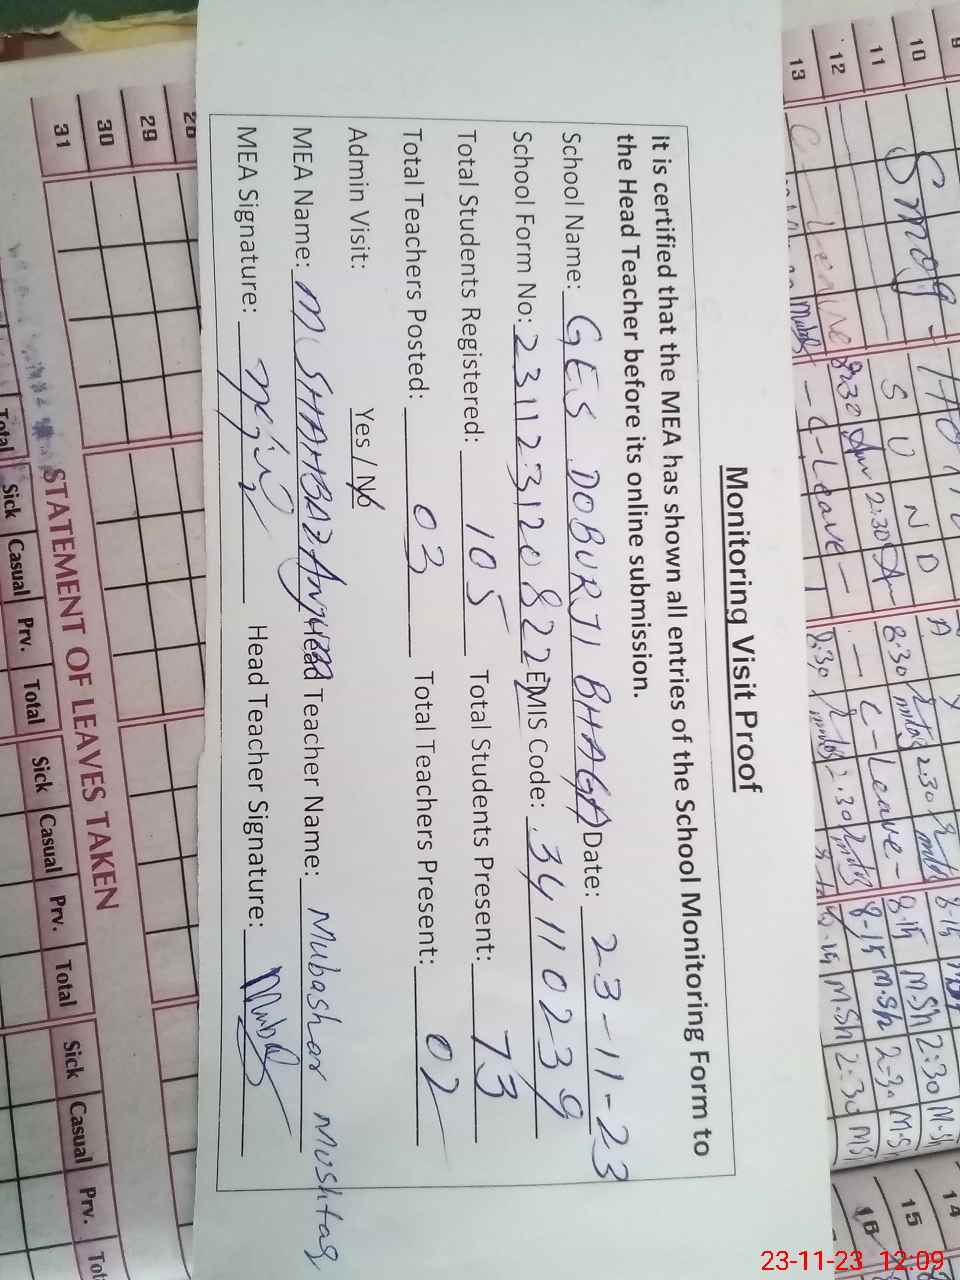 Monitoring Visit Proof
It is certified that the MEA has shown all entries of the School Monitoring Form to
the Head Teacher before its online submission.
School Name: GES DOBURJI BHAGA Date: 23-11-23
School Form No: 23112312 0822 EMIS Code: 34110239
Total Students Registered: 105 Total Students Present: 73
Total Teachers Posted: 03 Total Teachers Present: 02
Admin Visit: Yes / No
MEA Name: M. SHAHBAZ Head Teacher Name: Mubashar Mushtaq
MEA Signature: Head Teacher Signature:
9
10
11
12
13
Smog
S U N D A Y
C-Leave
8:30 2:30
8:30 2:30
C-Leave
8:30 2:30
8-15 M.Sh 2:30 M.Sh
8-15 M.Sh 2-30 M.S
M.Sh 2:30 MS
14
15
16
28
29
30
31
STATEMENT OF LEAVES TAKEN
Total Sick Casual Prv. Total Sick Casual Prv. Total Sick Casual Prv. Tot
23-11-23 12:09